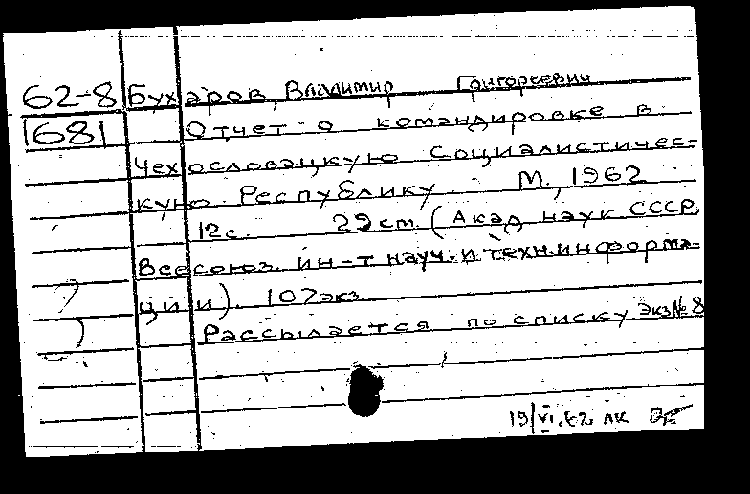 62-8 Бухаров, Владимир Григорьевич
1681 Отчет о командировке в
Чехословацкую Социалистичес-
кую Республику. М., 1962
12с. 29 см. (Акад наук СССР.
Всесоюз. ин-т науч. и техн. информа-
ции). 107 экз.
Рассылается по списку Экз № 8
19/VI.62 ЛК